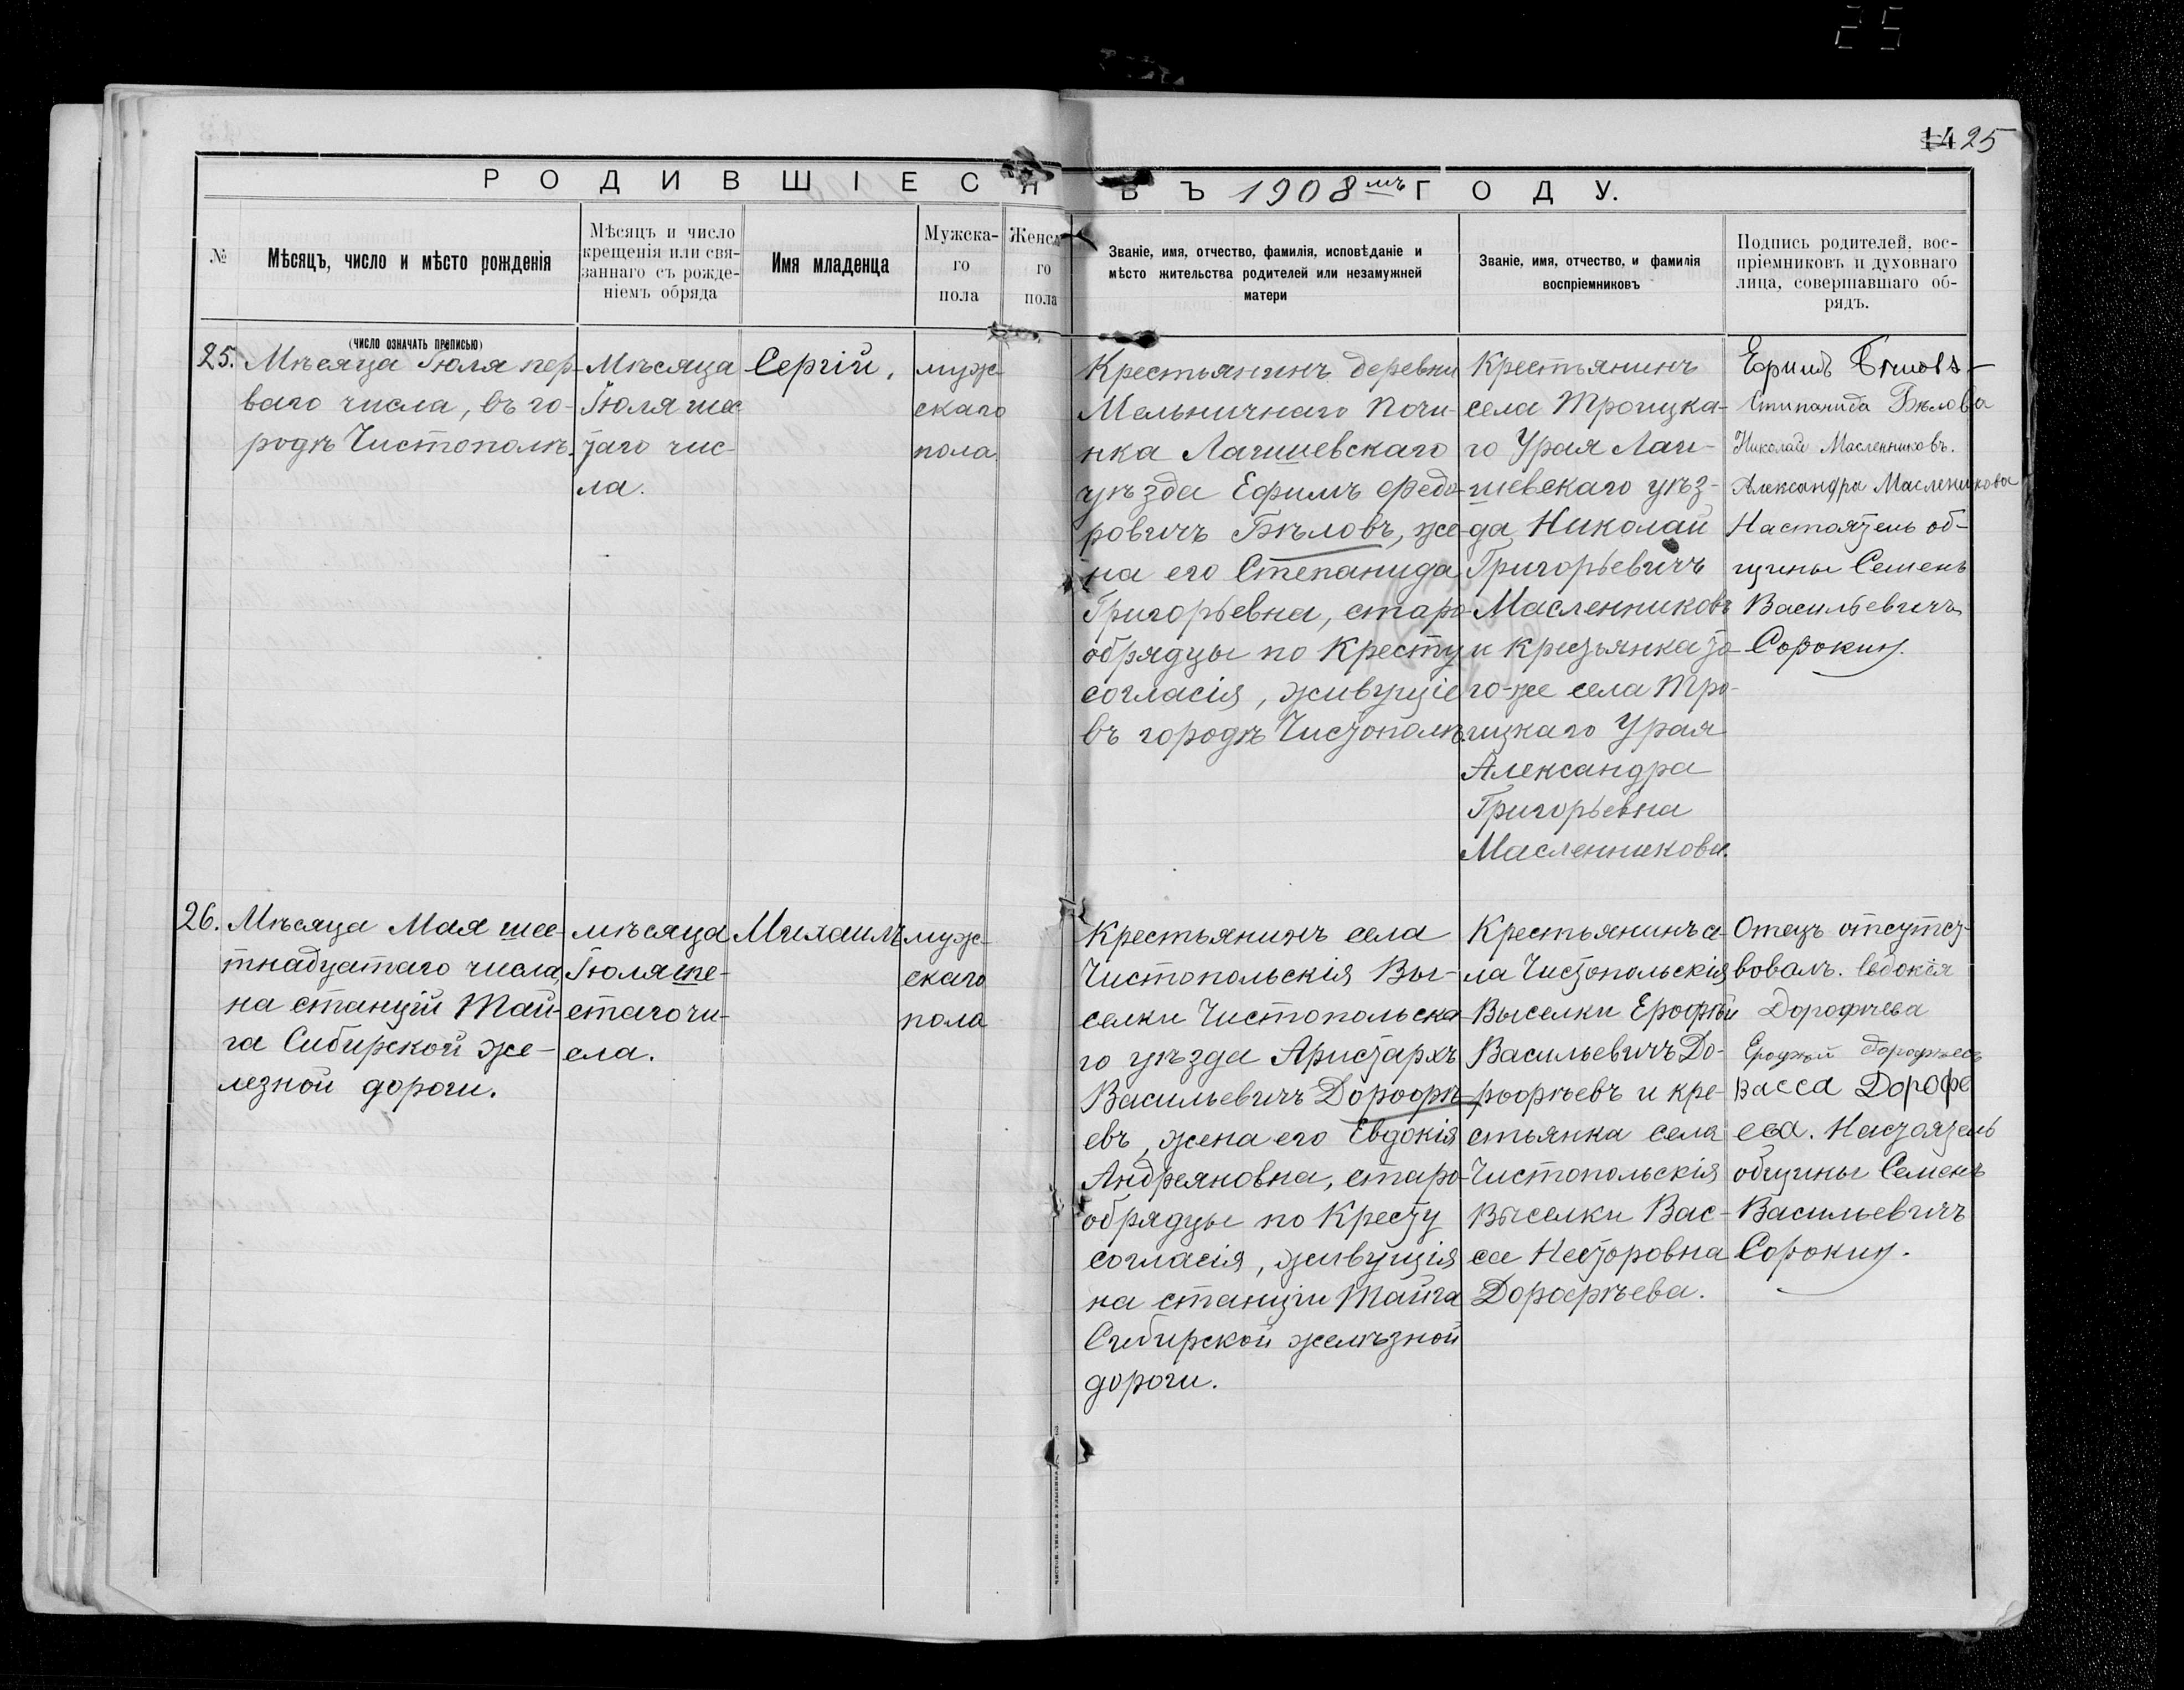 25
14 25
РОДИВШІЕСЯ ВЪ 1908мъ ГОДУ.
№
Мѣсяцъ, число и мѣсто рожденія
Мѣсяцъ и число
крещенія или свя-
заннаго съ рожде-
ніемъ обряда
Имя младенца
Мужска-
го
пола
Женск
го
пола
Званіе, имя, отчество, фамилія, исповѣданіе и
мѣсто жительства родителей или незамужней
матери
Званіе, имя, отчество, и фамилія
воспріемниковъ
Подпись родителей, вос-
пріемниковъ и духовнаго
лица, совершавшаго об-
рядъ.
(число означать прописью)
25.
Мѣсяца Іюля пер-
ваго числа, въ го-
родѣ Чистополѣ.
Мѣсяца
Іюля шес-
таго чис-
ла.
Сергій.
муж-
скаго
пола
Крестьянинъ деревни
Мельничнаго Почи-
нка Лаишевскаго
уѣзда Ефимъ Федо-
ровичъ Бѣловъ, же-
на его Степанида
Григорьевна, старо-
обрядцы по Кресту
согласія, живущіе
въ городѣ Чистополѣ.
Крестьянинъ
села Троицка-
го Урая Лаи-
шевскаго уѣз-
да Николай
Григорьевичъ
Масленниковъ
и крестьянка то-
го-же села Тро-
ицкаго Урая
Александра
Григорьевна
Масленникова.
Ефимъ Бѣловъ
Стипанида Бѣлова
Николай Масленниковъ.
Александра Масленикова
Настоятель об-
щины Семенъ
Васильевичъ
Сорокин.
26.
Мѣсяца Мая шес-
тнадцатаго числа,
на станціи Тай-
га Сибирской же-
лезной дороги.
мѣсяца
Іюля ше-
стаго чи-
сла.
Михаилъ
муж-
скаго
пола
Крестьянинъ села
Чистопольскія Вы-
селки Чистопольска-
го уѣзда Аристархъ
Васильевичъ Дорофѣ-
евъ, жена его Евдокія
Андреяновна, старо-
обрядцы по Кресту
согласія, живущія
на станціи Тайга
Сибирской желѣзной
дороги.
Крестьянинъ се-
ла Чистопольскія
Выселки Ерофѣй
Васильевичъ До-
рофѣевъ и кре-
стьянка села
Чистопольскія
Выселки Вас-
са Несторовна
Дорофѣева.
Отецъ отсутст-
вовалъ. Евдокія
Дорофѣева
Ерофѣй Дорофѣевъ
Васса Дорофе
ева. Настоятель
общины Семенъ
Васильевичъ
Сорокин.